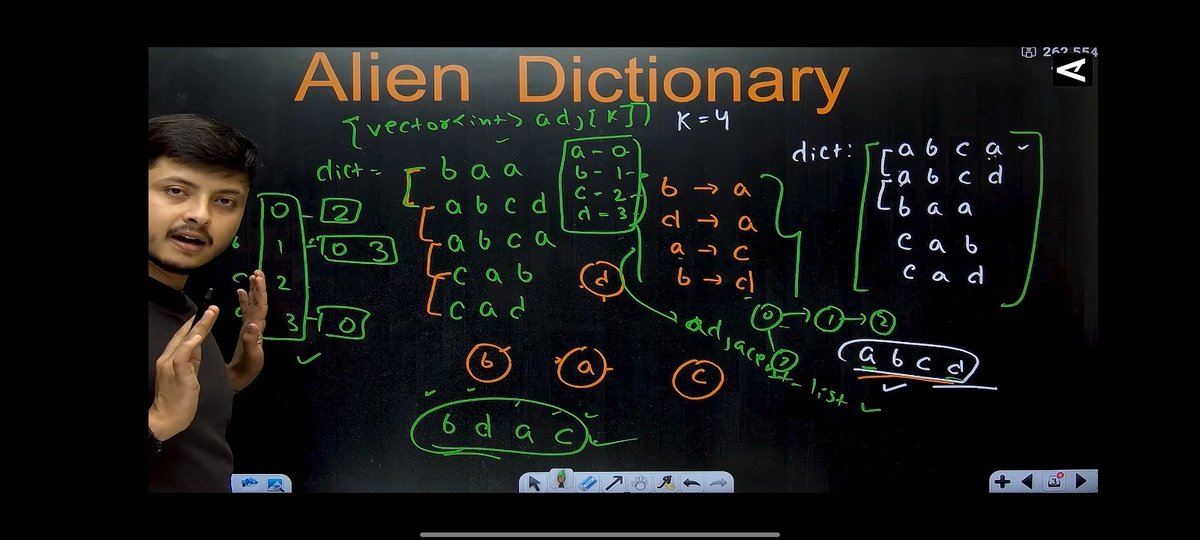 262,554
Alien Dictionary
[vector<int> adj[K]]
K = 4
dict =
b a a
a b c d
a b c a
c a b
c a d
a - 0
b - 1
c - 2
d - 3
b → a
d → a
a → c
b → d
dict:
a b c a
a b c d
b a a
c a b
c a d
0 2
b 1 0 3
c 2
3 0
d
adjacent list
0 → 1 → 2
a b c d
b a c
b d a c
3